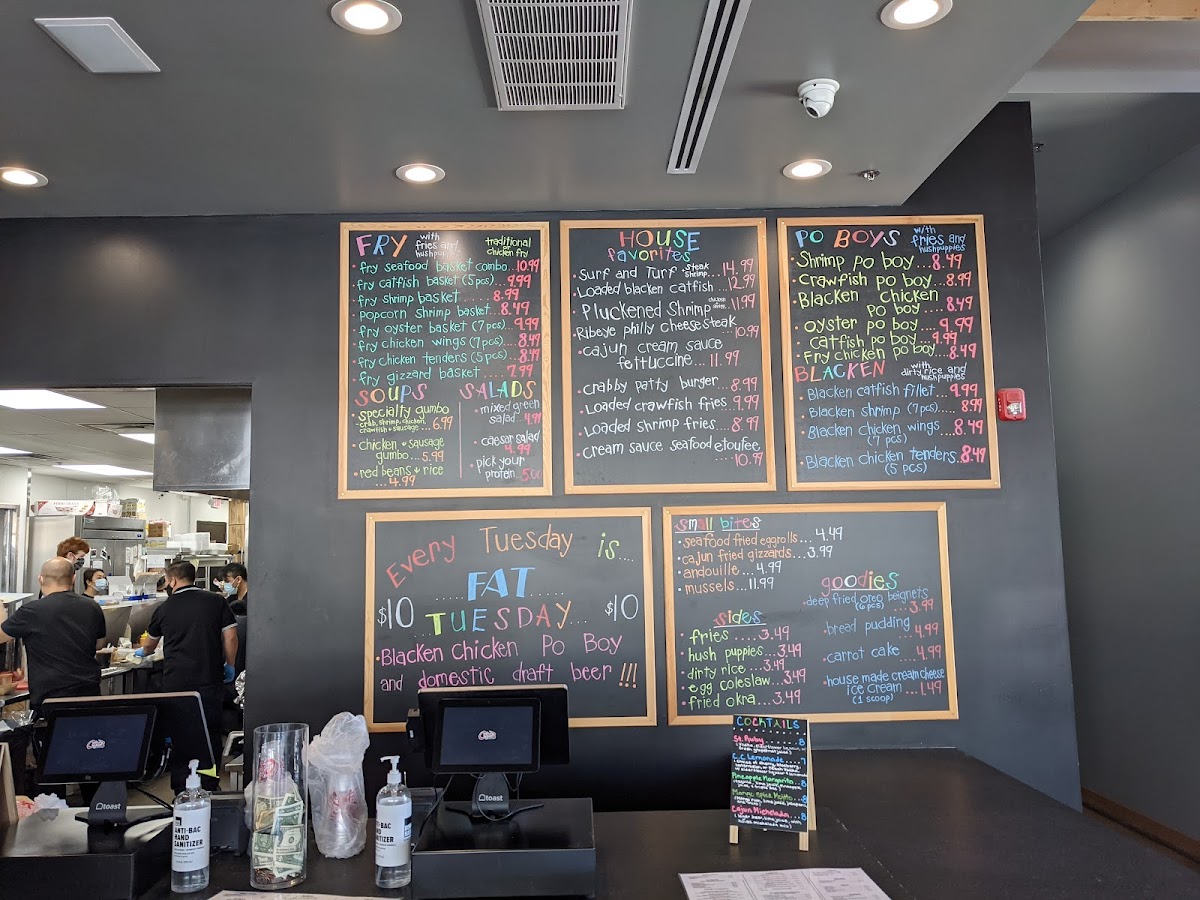 FRY with fries and hushpuppies traditional or chicken fry
• fry seafood basket combo...10.99
• fry catfish basket (5pcs)...9.99
• fry shrimp basket.....8.99
• popcorn shrimp basket...8.49
• fry oyster basket (7pcs)...9.99
• fry chicken wings (7pcs)...8.49
• fry chicken tenders (5pcs)...8.49
• fry gizzard basket.....7.99
SOUPS
• specialty gumbo
crab, shrimp, chicken,
crawfish + sausage...6.99
• chicken + sausage
gumbo...5.99
• red beans + rice
...4.99
SALADS
• mixed green
salad..4.99
• caesar salad
4.99
• pick your
protein 5.00
HOUSE
favorites
• Surf and Turf steak shrimp...14.99
• Loaded blacken catfish...12.99
• Pluckened Shrimp 11.99
• Ribeye philly cheesesteak
10.99
• cajun cream sauce
fettuccine...11.99
• crabby patty burger...8.99
• Loaded crawfish fries..9.99
• Loaded shrimp fries...8.99
• cream sauce seafood etoufee
...10.99
PO BOYS with fries and hushpuppies
• Shrimp po boy...8.49
• Crawfish po boy..8.99
• Blacken chicken
po boy....8.49
• oyster po boy....9.99
• catfish po boy...9.99
• Fry chicken po boy...8.49
BLACKEN with dirty rice and hushpuppies
• Blacken catfish fillet..9.99
• Blacken shrimp (7pcs)....8.99
• Blacken chicken wings...8.49
(7 pcs)
• Blacken chicken tenders..8.49
(5 pcs)
Every Tuesday is...
.....FAT.....
$10 ..TUESDAY... $10
• Blacken Chicken Po Boy
and domestic draft beer !!!
small bites
• seafood fried eggrolls...4.49
• cajun fried gizzards...3.99
• andouille...4.99
• mussels...11.99
sides
• fries.....3.49
• hush puppies...3.49
• dirty rice...3.49
• egg coleslaw...3.49
• fried okra...3.49
goodies
• deep fried oreo beignets
(6pcs) ...3.99
• bread pudding
...4.99
• carrot cake...4.99
• house made cream cheese
ice cream...1.49
(1 scoop)
COCKTAILS
St. Ruby...8
C.C Lemonade...7
Pineapple Margarita..8
Mango Spice Mojito..8
Cajun Michelada...8
toast
toast
ANTI-BAC
HAND
SANITIZER
ANTI-BAC
HAND
SANITIZER